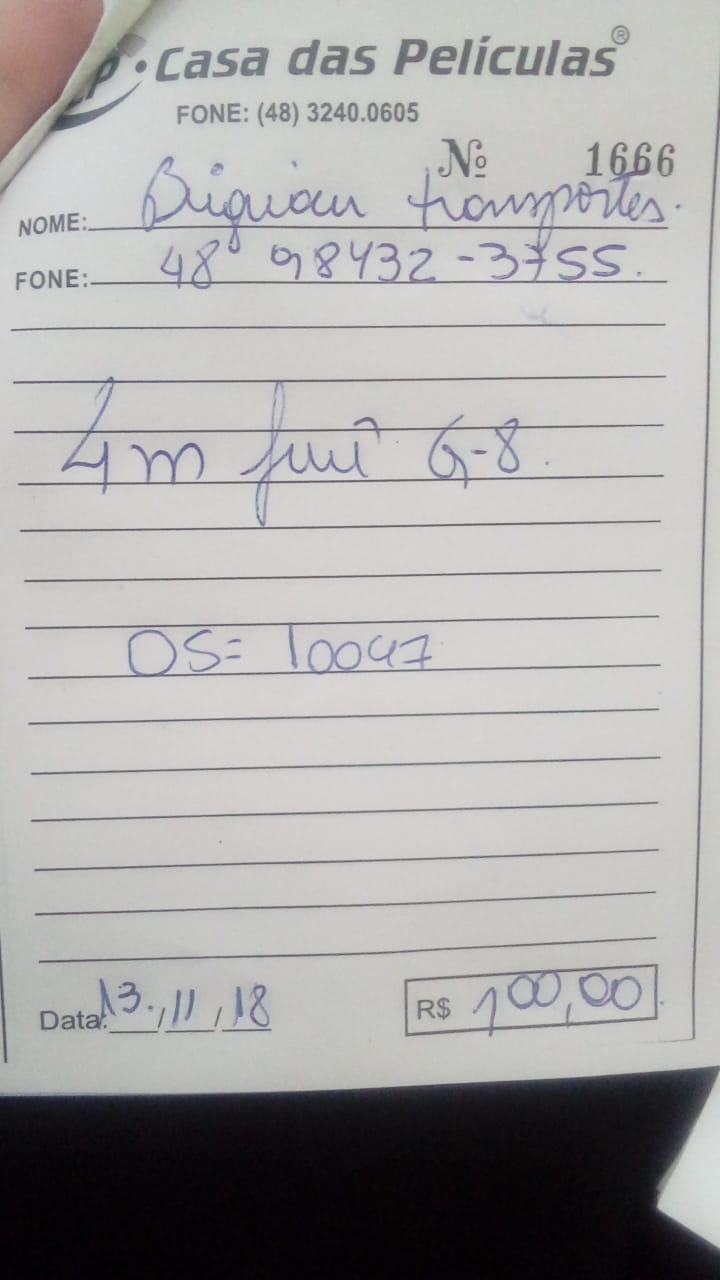 CP • Casa das Películas®
FONE: (48) 3240.0605
Nº 1666
NOME: Biguiau transportes.
FONE: 48 98432-3755.
4m G-8.
OS= 10047
Data: 13./11/18
R$ 100,00